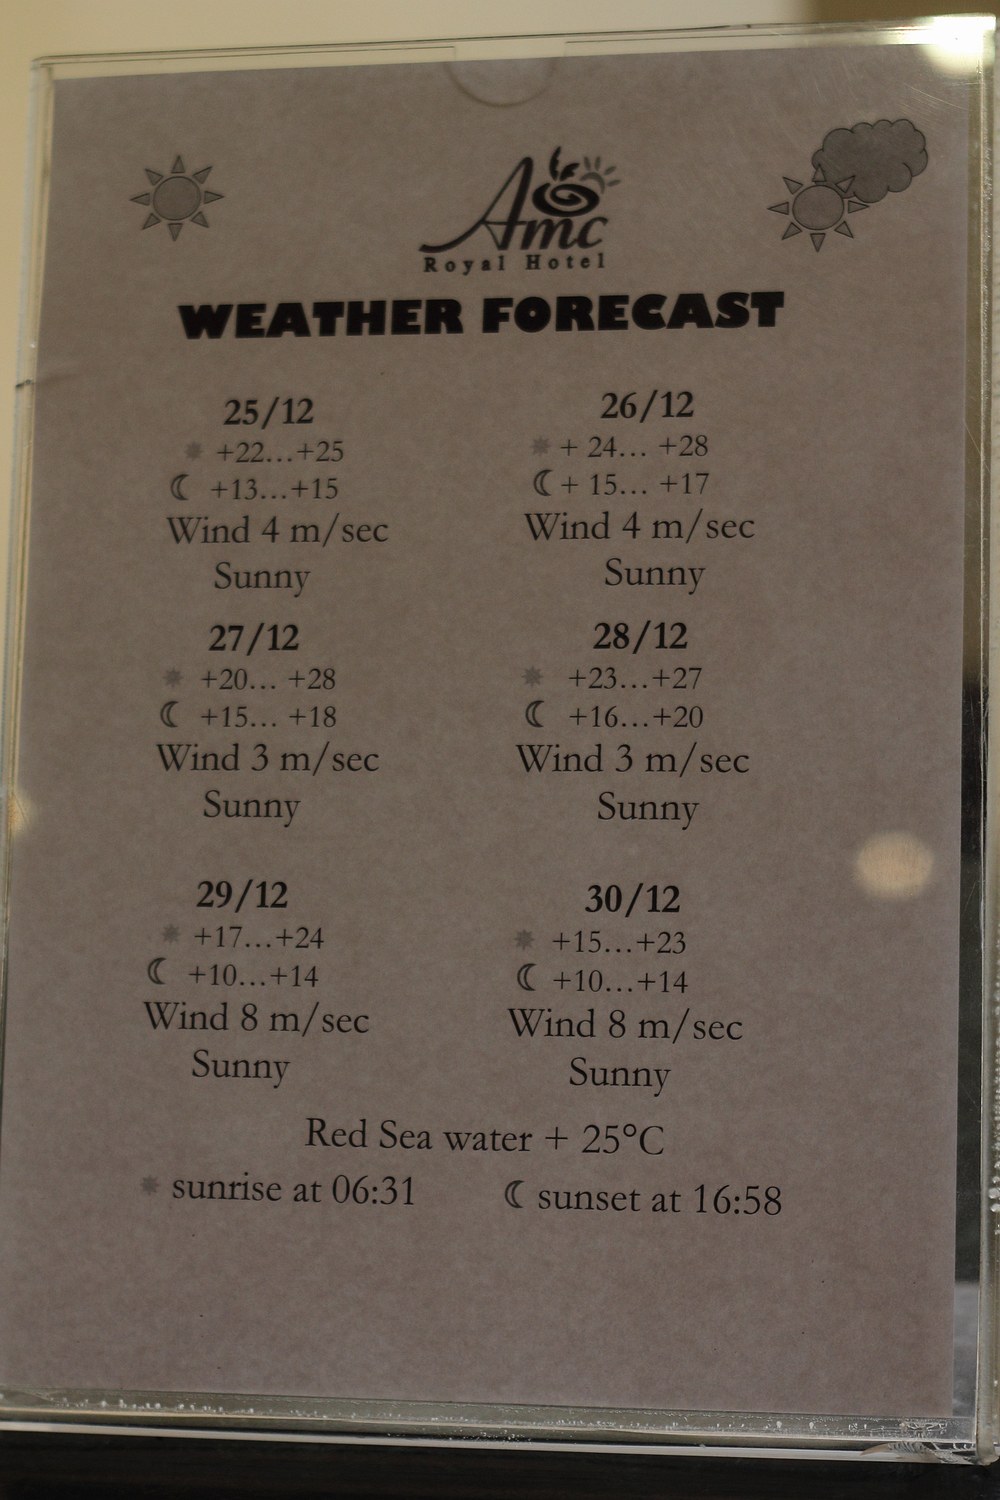 Amc
Royal Hotel
WEATHER FORECAST
25/12
+22...+25
+13...+15
Wind 4 m/sec
Sunny
26/12
+ 24... +28
+ 15... +17
Wind 4 m/sec
Sunny
27/12
+20... +28
+15... +18
Wind 3 m/sec
Sunny
28/12
+23...+27
+16...+20
Wind 3 m/sec
Sunny
29/12
+17...+24
+10...+14
Wind 8 m/sec
Sunny
30/12
+15...+23
+10...+14
Wind 8 m/sec
Sunny
Red Sea water + 25°C
sunrise at 06:31
sunset at 16:58